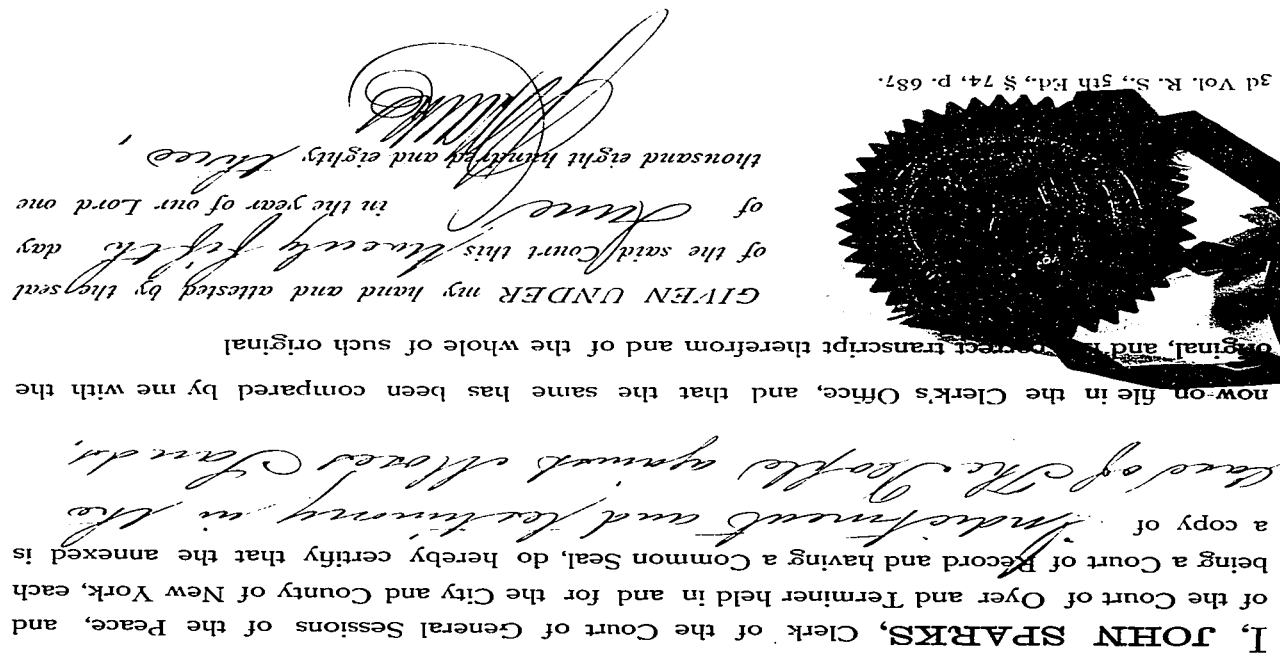 I, JOHN SPARKS, Clerk of the Court of General Sessions of the Peace, and
of the Court of Oyer and Terminer held in and for the City and County of New York, each
being a Court of Record and having a Common Seal, do hereby certify that the annexed is
a copy of Indictment and testimony in the
case of The People against Moses Sands,
now on file in the Clerk's Office, and that the same has been compared by me with the
original, and is a correct transcript therefrom and of the whole of such original
GIVEN UNDER my hand and attested by the seal
of the said Court this twenty fifth day
of June in the year of our Lord one
thousand eight hundred and eighty three,
3d Vol. R. S., 5th Ed., § 74, p. 687.